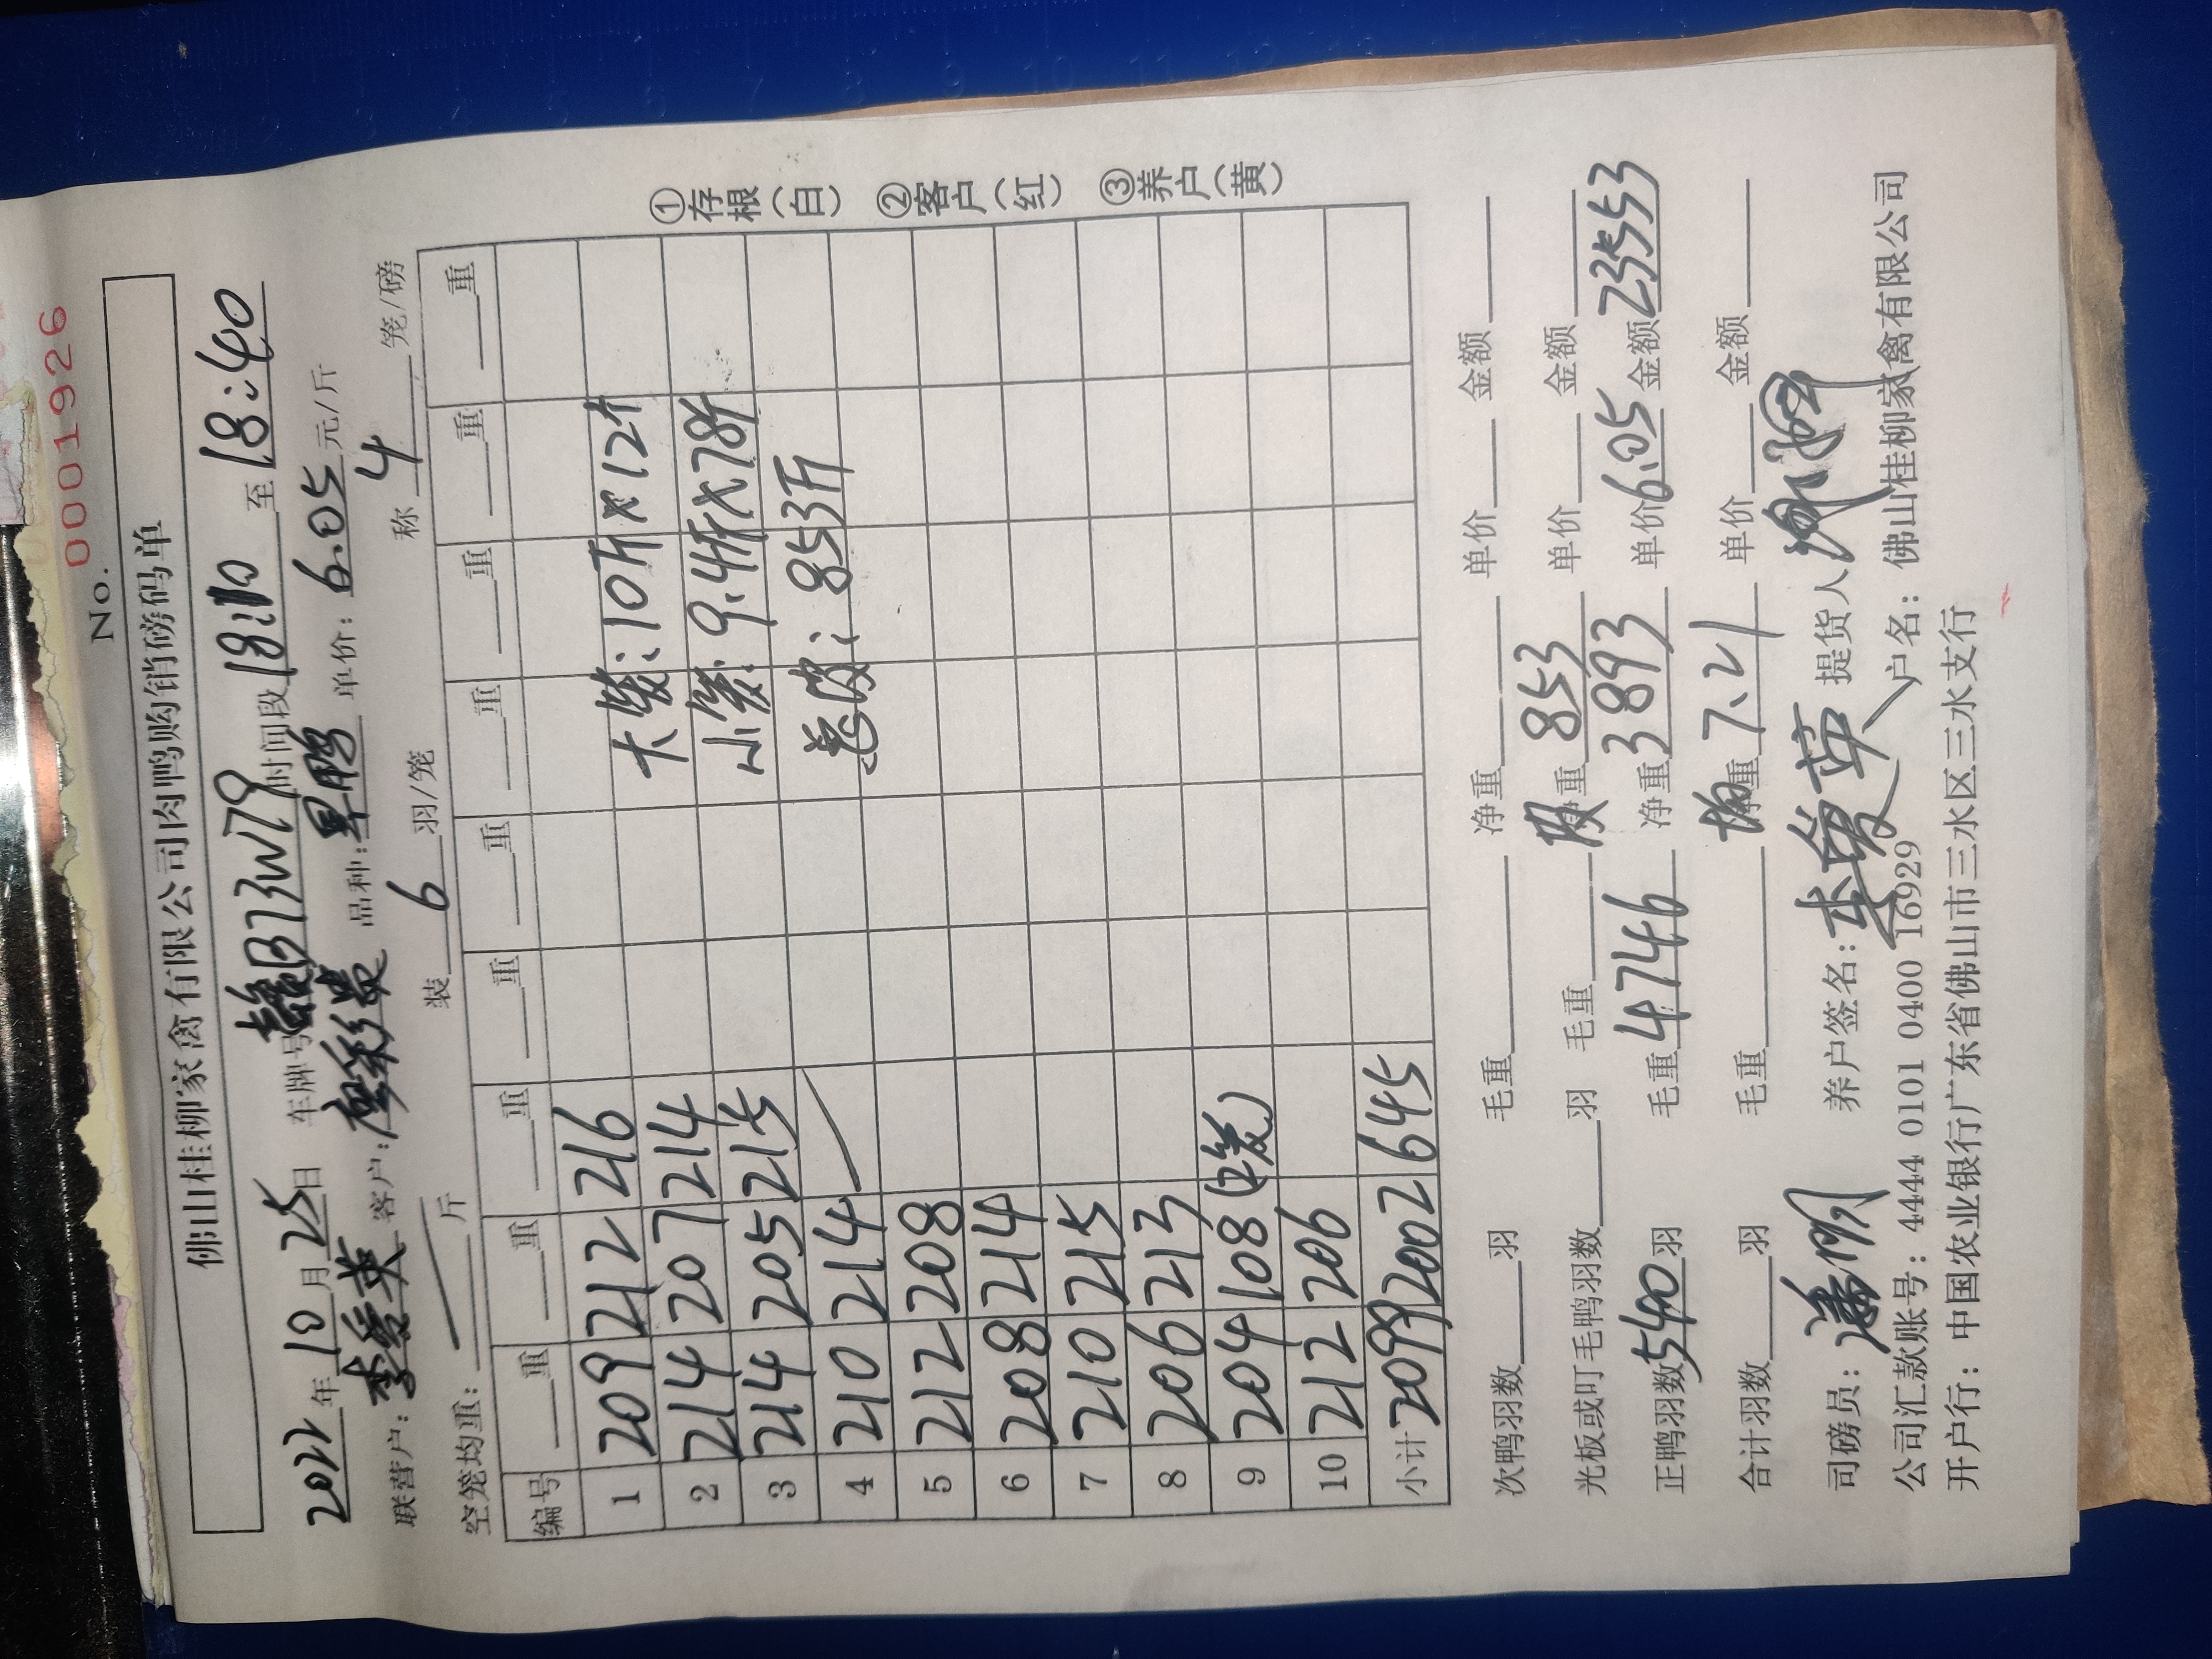 No. 0001926
佛山桂柳家禽有限公司肉鸭购销磅码单
2022年10月25日 车牌号B73W79时间段18:10至18:40
联营户:李爱英 客户:廖彩 品种:早鸭 单价:6.05元/斤
空笼均重:斤 装6羽/笼 称4笼/磅
编号 重 重 重 重 重 重 重 重 重
1 209 212 216 大笼:10斤×12个
2 214 207 214 小笼:9.4斤×78个
3 214 205 215 总皮:853斤
4 210 214
5 212 208
6 208 214
7 210 215
8 206 213
9 204 108 (2笼)
10 212 206
小计 2099 2002 645
①存根(白) ②客户(红) ③养户(黄)
次鸭羽数 羽 毛重 净重 单价 金额
光板或叮毛鸭羽数 羽 毛重 皮净重853 单价 金额
正鸭羽数540羽 毛重4746 净重3893 单价6.05 金额23553
合计羽数 羽 毛重 均净重7.21 单价 金额
司磅员: 养户签名:李爱英 提货人
公司汇款账号:4444 0101 0400 16929 户名:佛山桂柳家禽有限公司
开户行:中国农业银行广东省佛山市三水区三水支行